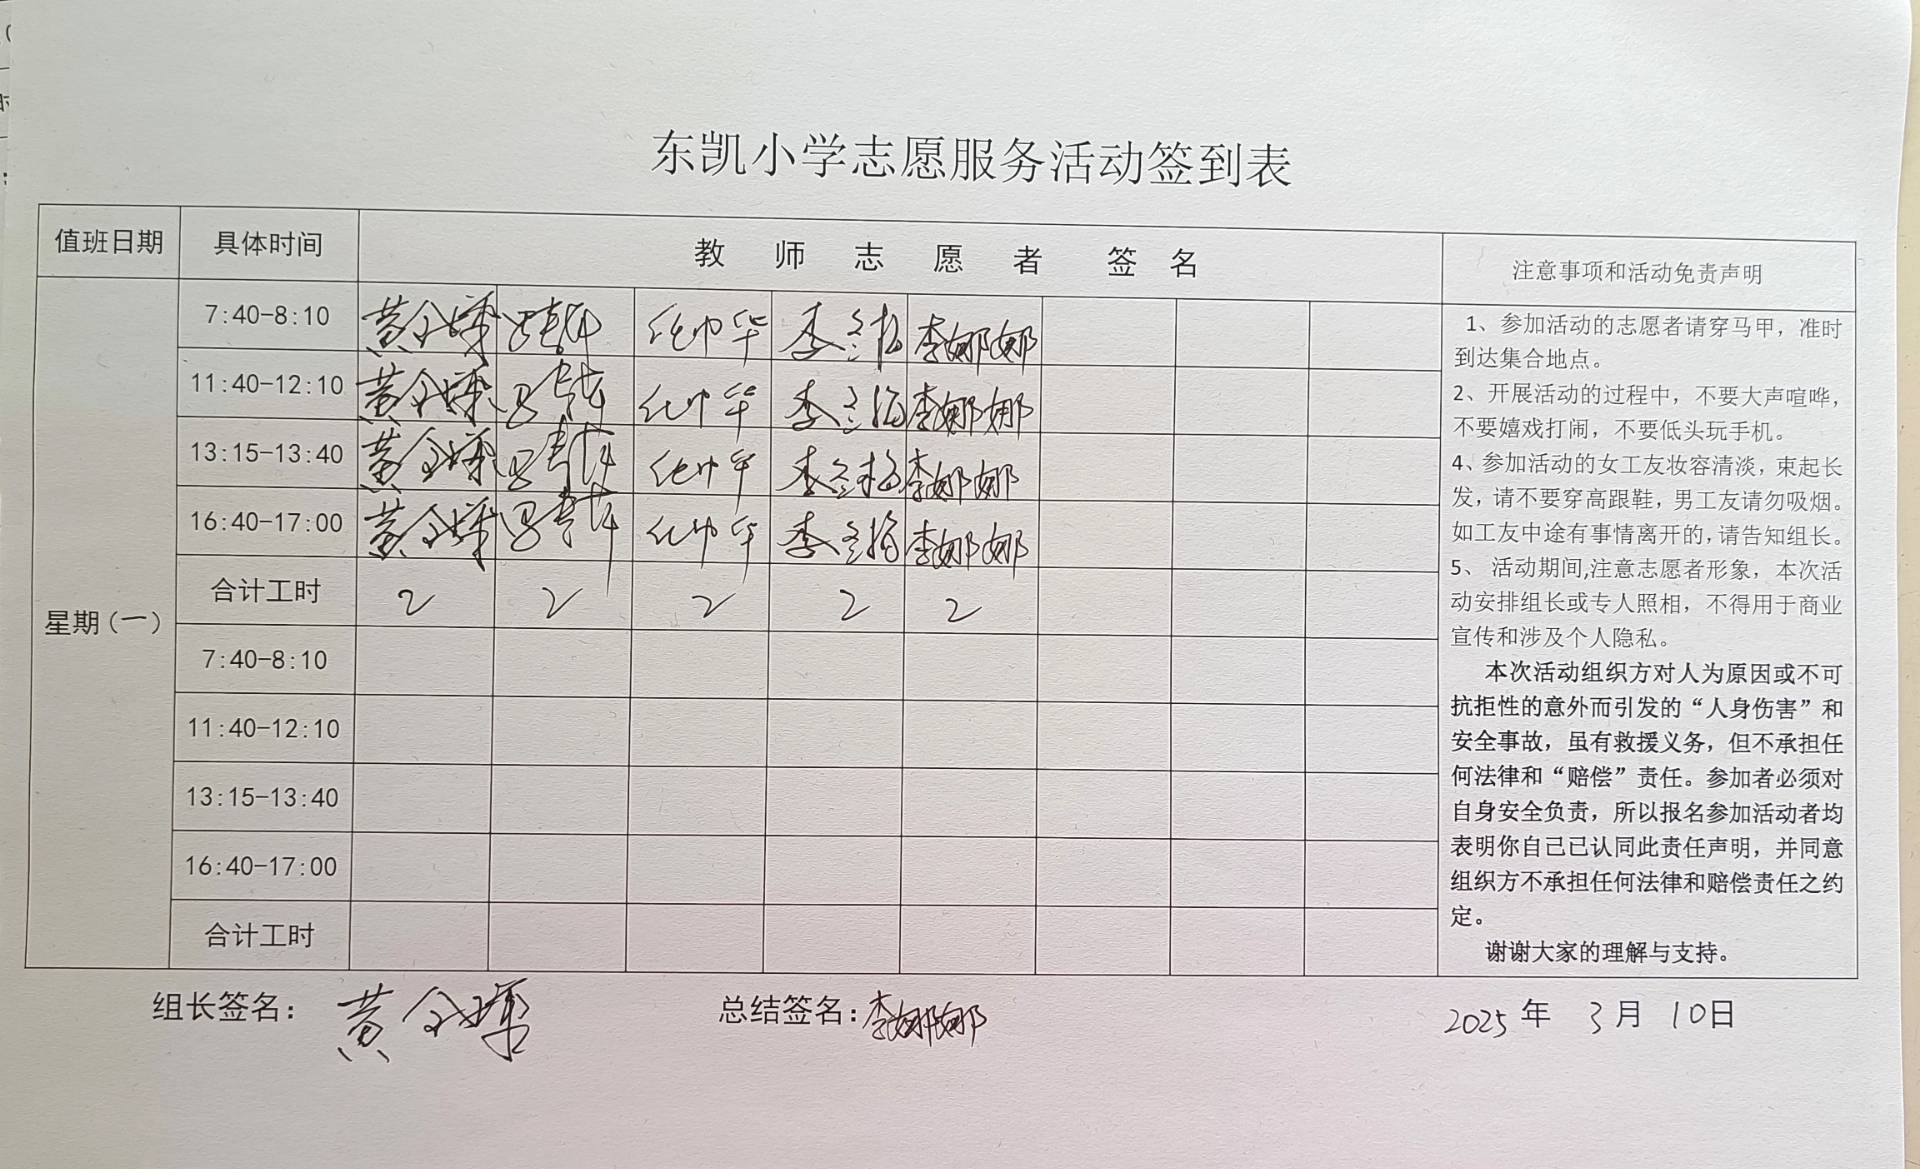 东凯小学志愿服务活动签到表
值班日期 具体时间 教师志愿者签名 注意事项和活动免责声明
星期(一)
7:40-8:10 李娜娜
11:40-12:10 李娜娜
13:15-13:40 李娜娜
16:40-17:00 李娜娜
合计工时 2 2 2 2 2
7:40-8:10
11:40-12:10
13:15-13:40
16:40-17:00
合计工时
1、参加活动的志愿者请穿马甲，准时
到达集合地点。
2、开展活动的过程中，不要大声喧哗，
不要嬉戏打闹，不要低头玩手机。
4、参加活动的女工友妆容清淡，束起长
发，请不要穿高跟鞋，男工友请勿吸烟。
如工友中途有事情离开的，请告知组长。
5、 活动期间,注意志愿者形象，本次活
动安排组长或专人照相，不得用于商业
宣传和涉及个人隐私。
本次活动组织方对人为原因或不可
抗拒性的意外而引发的“人身伤害”和
安全事故，虽有救援义务，但不承担任
何法律和“赔偿”责任。参加者必须对
自身安全负责，所以报名参加活动者均
表明你自己已认同此责任声明，并同意
组织方不承担任何法律和赔偿责任之约
定。
谢谢大家的理解与支持。
组长签名： 总结签名：李娜娜 2025年 3月 10日